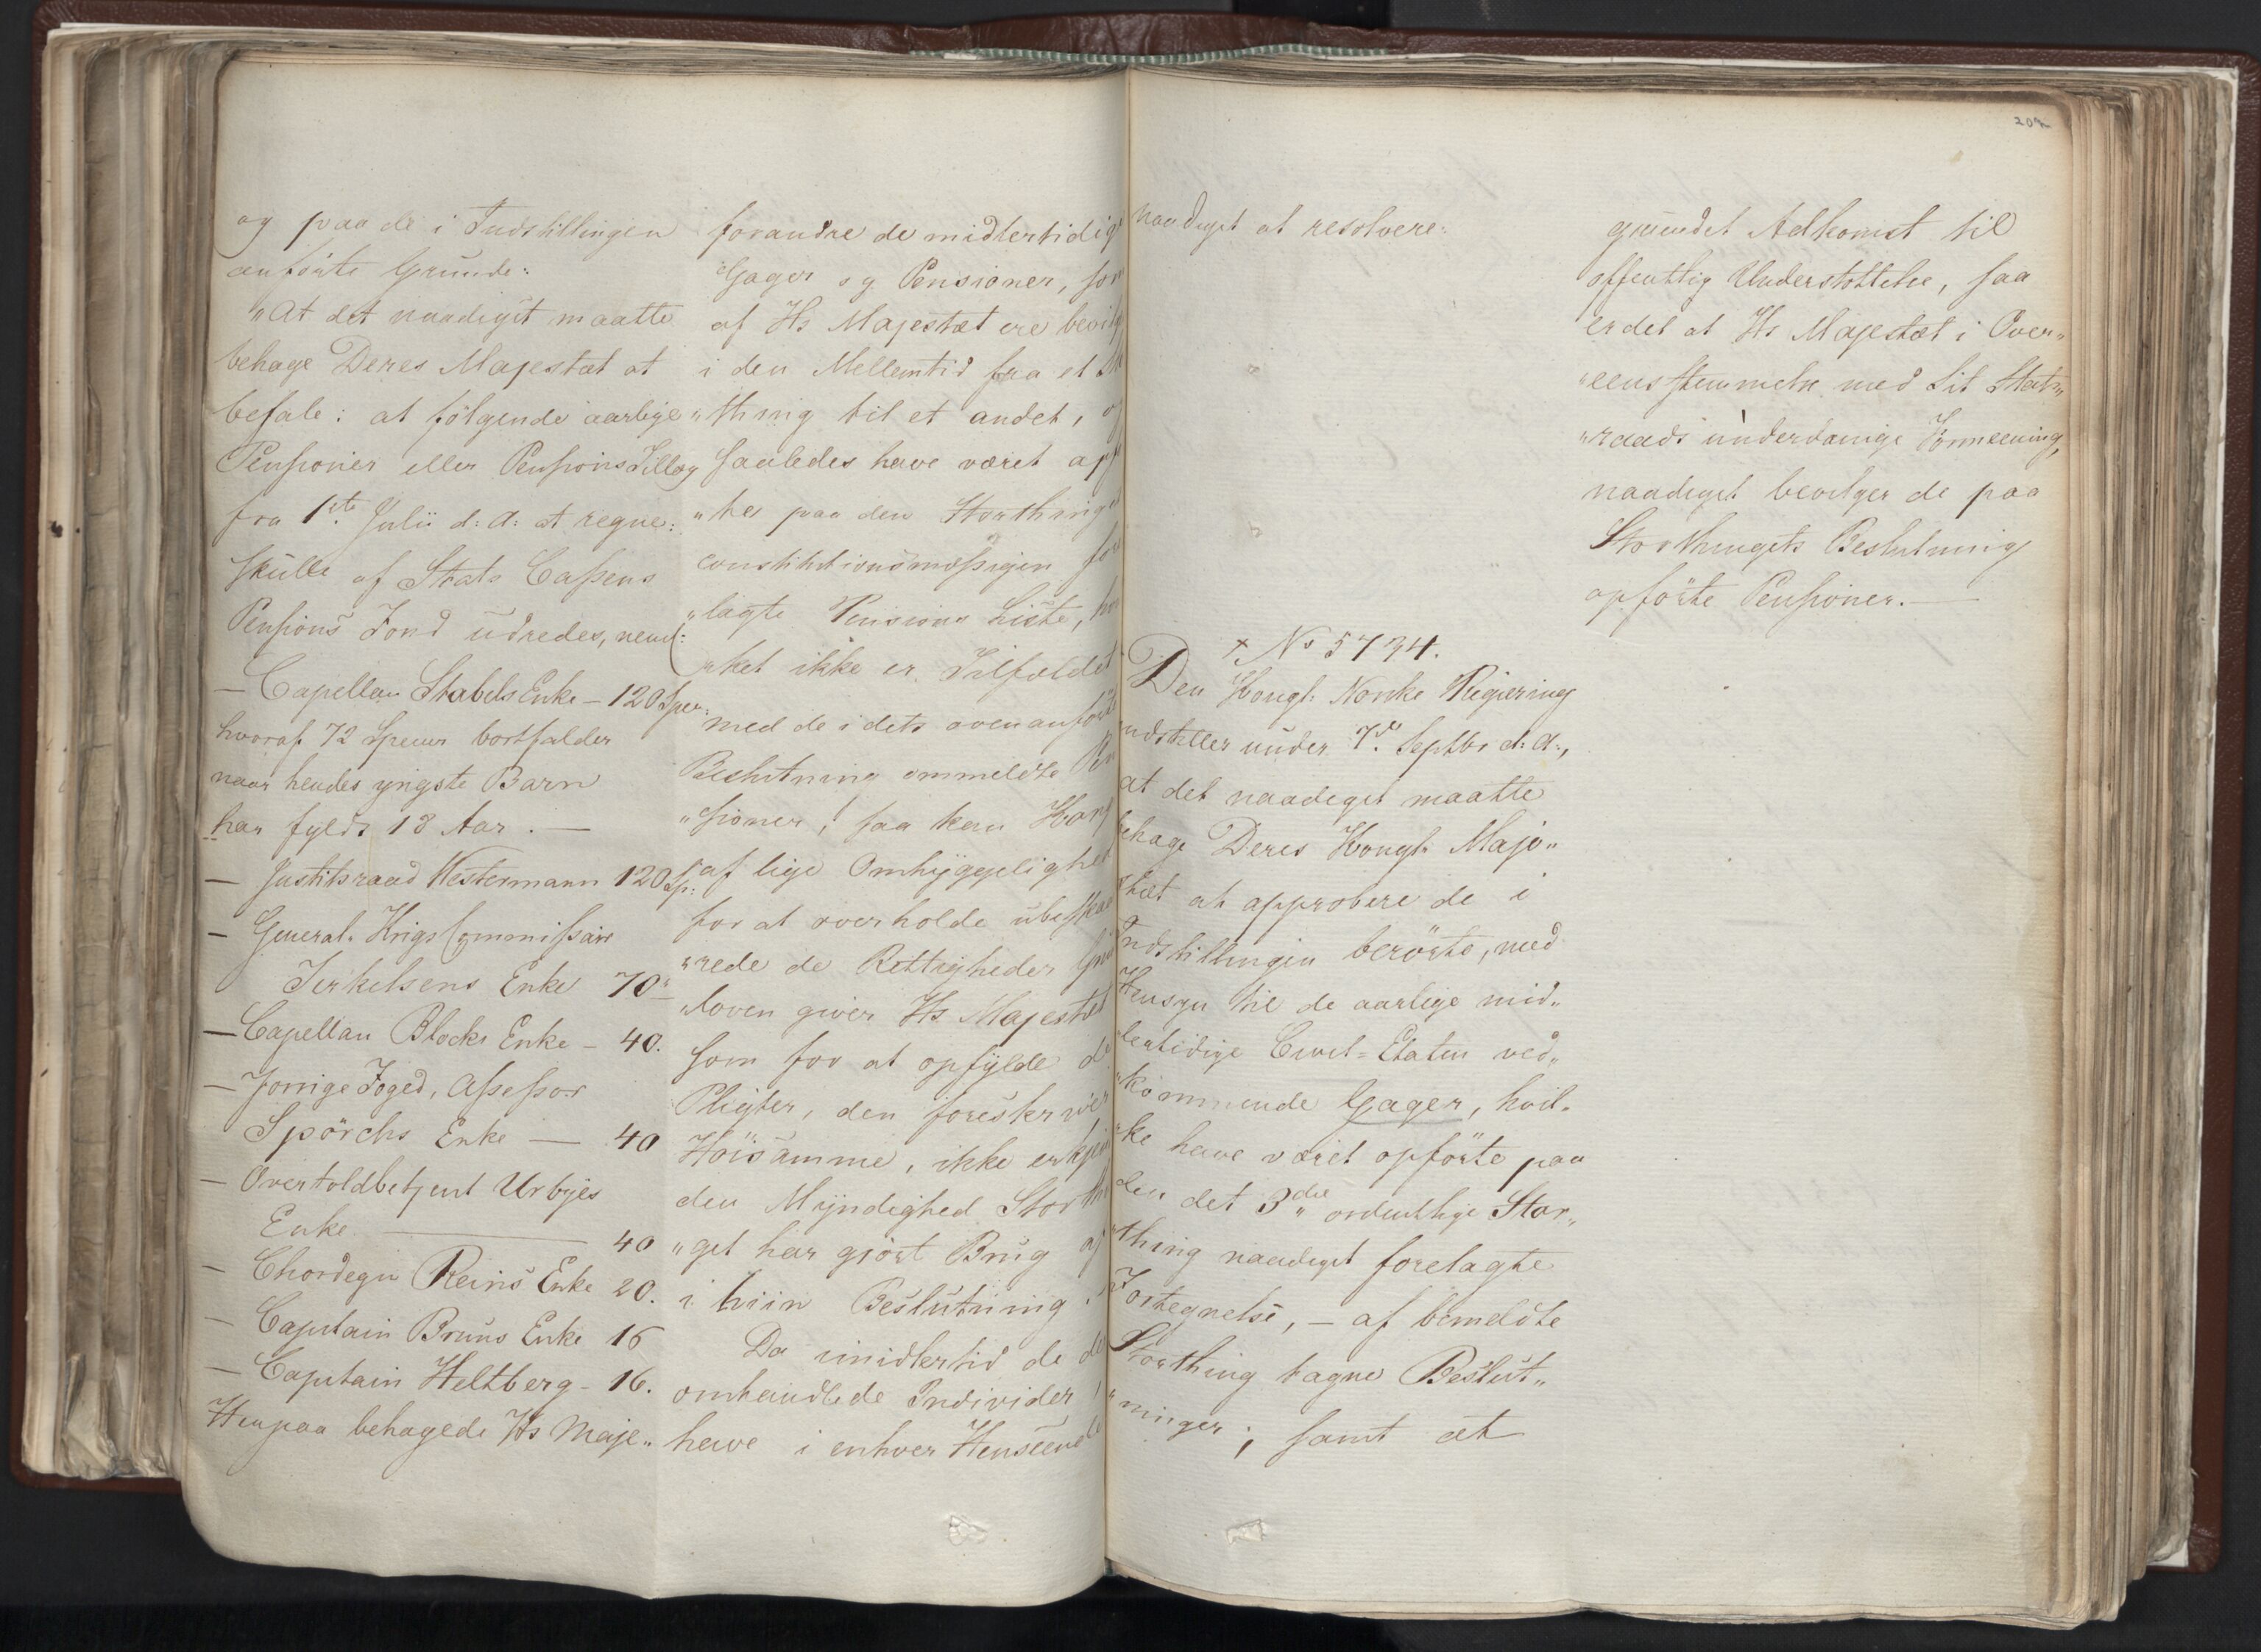 og paa de i Indstillingen
anførte Grunde:
"At det naadigst maatte
behage Deres Majestæt at
befale: at følgende aarlige
Pensioner eller PensionsTillæg
fra 1ste Julii d: A: at regne:
skulle af Stats Cassens
Pensions Fond udredes, neml:
— Capellan Stabels Enke — 120 Spec:
hvoraf 72 Specier bortfalder
naar hendes yngste Barn
har fyldt 18 Aar. —
— Justitsraad Westermann 120 Sp:
— General-Krigs Commissair
Terkelsens Enke 70"
— Capellan Blocks Enke — 40.
— forrige Foged, Assessor
Spörchs Enke — 40
— Overtoldbetjent Urbyes
Enke — 40
— Chordegn Reins Enke 20.
— Captain Bruns Enke 16
— Captain Heltberg - 16.
Herpaa behagede Hs Maje"
naadigst at resolvere:
forandre de midlertidige
Gager og Pensioner, som
af Hs Majestæt ere bevilg
i den Mellemtid fra et Sto
"thing til et andet, og
saaledes have været opfø
"tes paa den Storthinget
constitutionsmæssigen fore
"lagte Pensions Liste, hvi
"ket ikke er Tilfældet
med de i dets ovenanførte
Beslutning ommeldte Pen
"sioner; saa kan Hans
af lige Omhyggelighed
for at overholde ubeskaa
"rede de Rettigheder Grund
"loven giver Hs Majestæt
som for at opfylde de
Pligter, den foreskriver
Høisamme, ikke erkjende
den Myndighed Storthin
"get har gjort Brug af
i hiin Beslutning.
Da imidlertid de der
omhandlede Individer
have i enhver Henseende
grundet Adkomst til
offentlig Understøttelse, saa
er det at Hs Majestæt i Over"
"eensstemmelse med Sit Stats"
"raads underdanige Formeening,
naadigst bevilger de paa
Storthingets Beslutning
opførte Pensioner. —
207
+ No 5734.
Den Kongl: Norske Regjering
indstiller under 7de Septbr d: A:,
at det naadigst maatte
behage Deres Kongl: Maje"
stæt at approbere de i
Indstillingen berørte, med
Hensyn til de aarlige mid"
lertidige Civil=Etaten ved"
"kommende Gager, hvil"
"ke have været opførte paa
den det 3die ordentlige Stor"
"thing naadigst forelagte
Fortegnelse, — af bemeldte
Storthing tagne Beslut"
"ninger; samt at